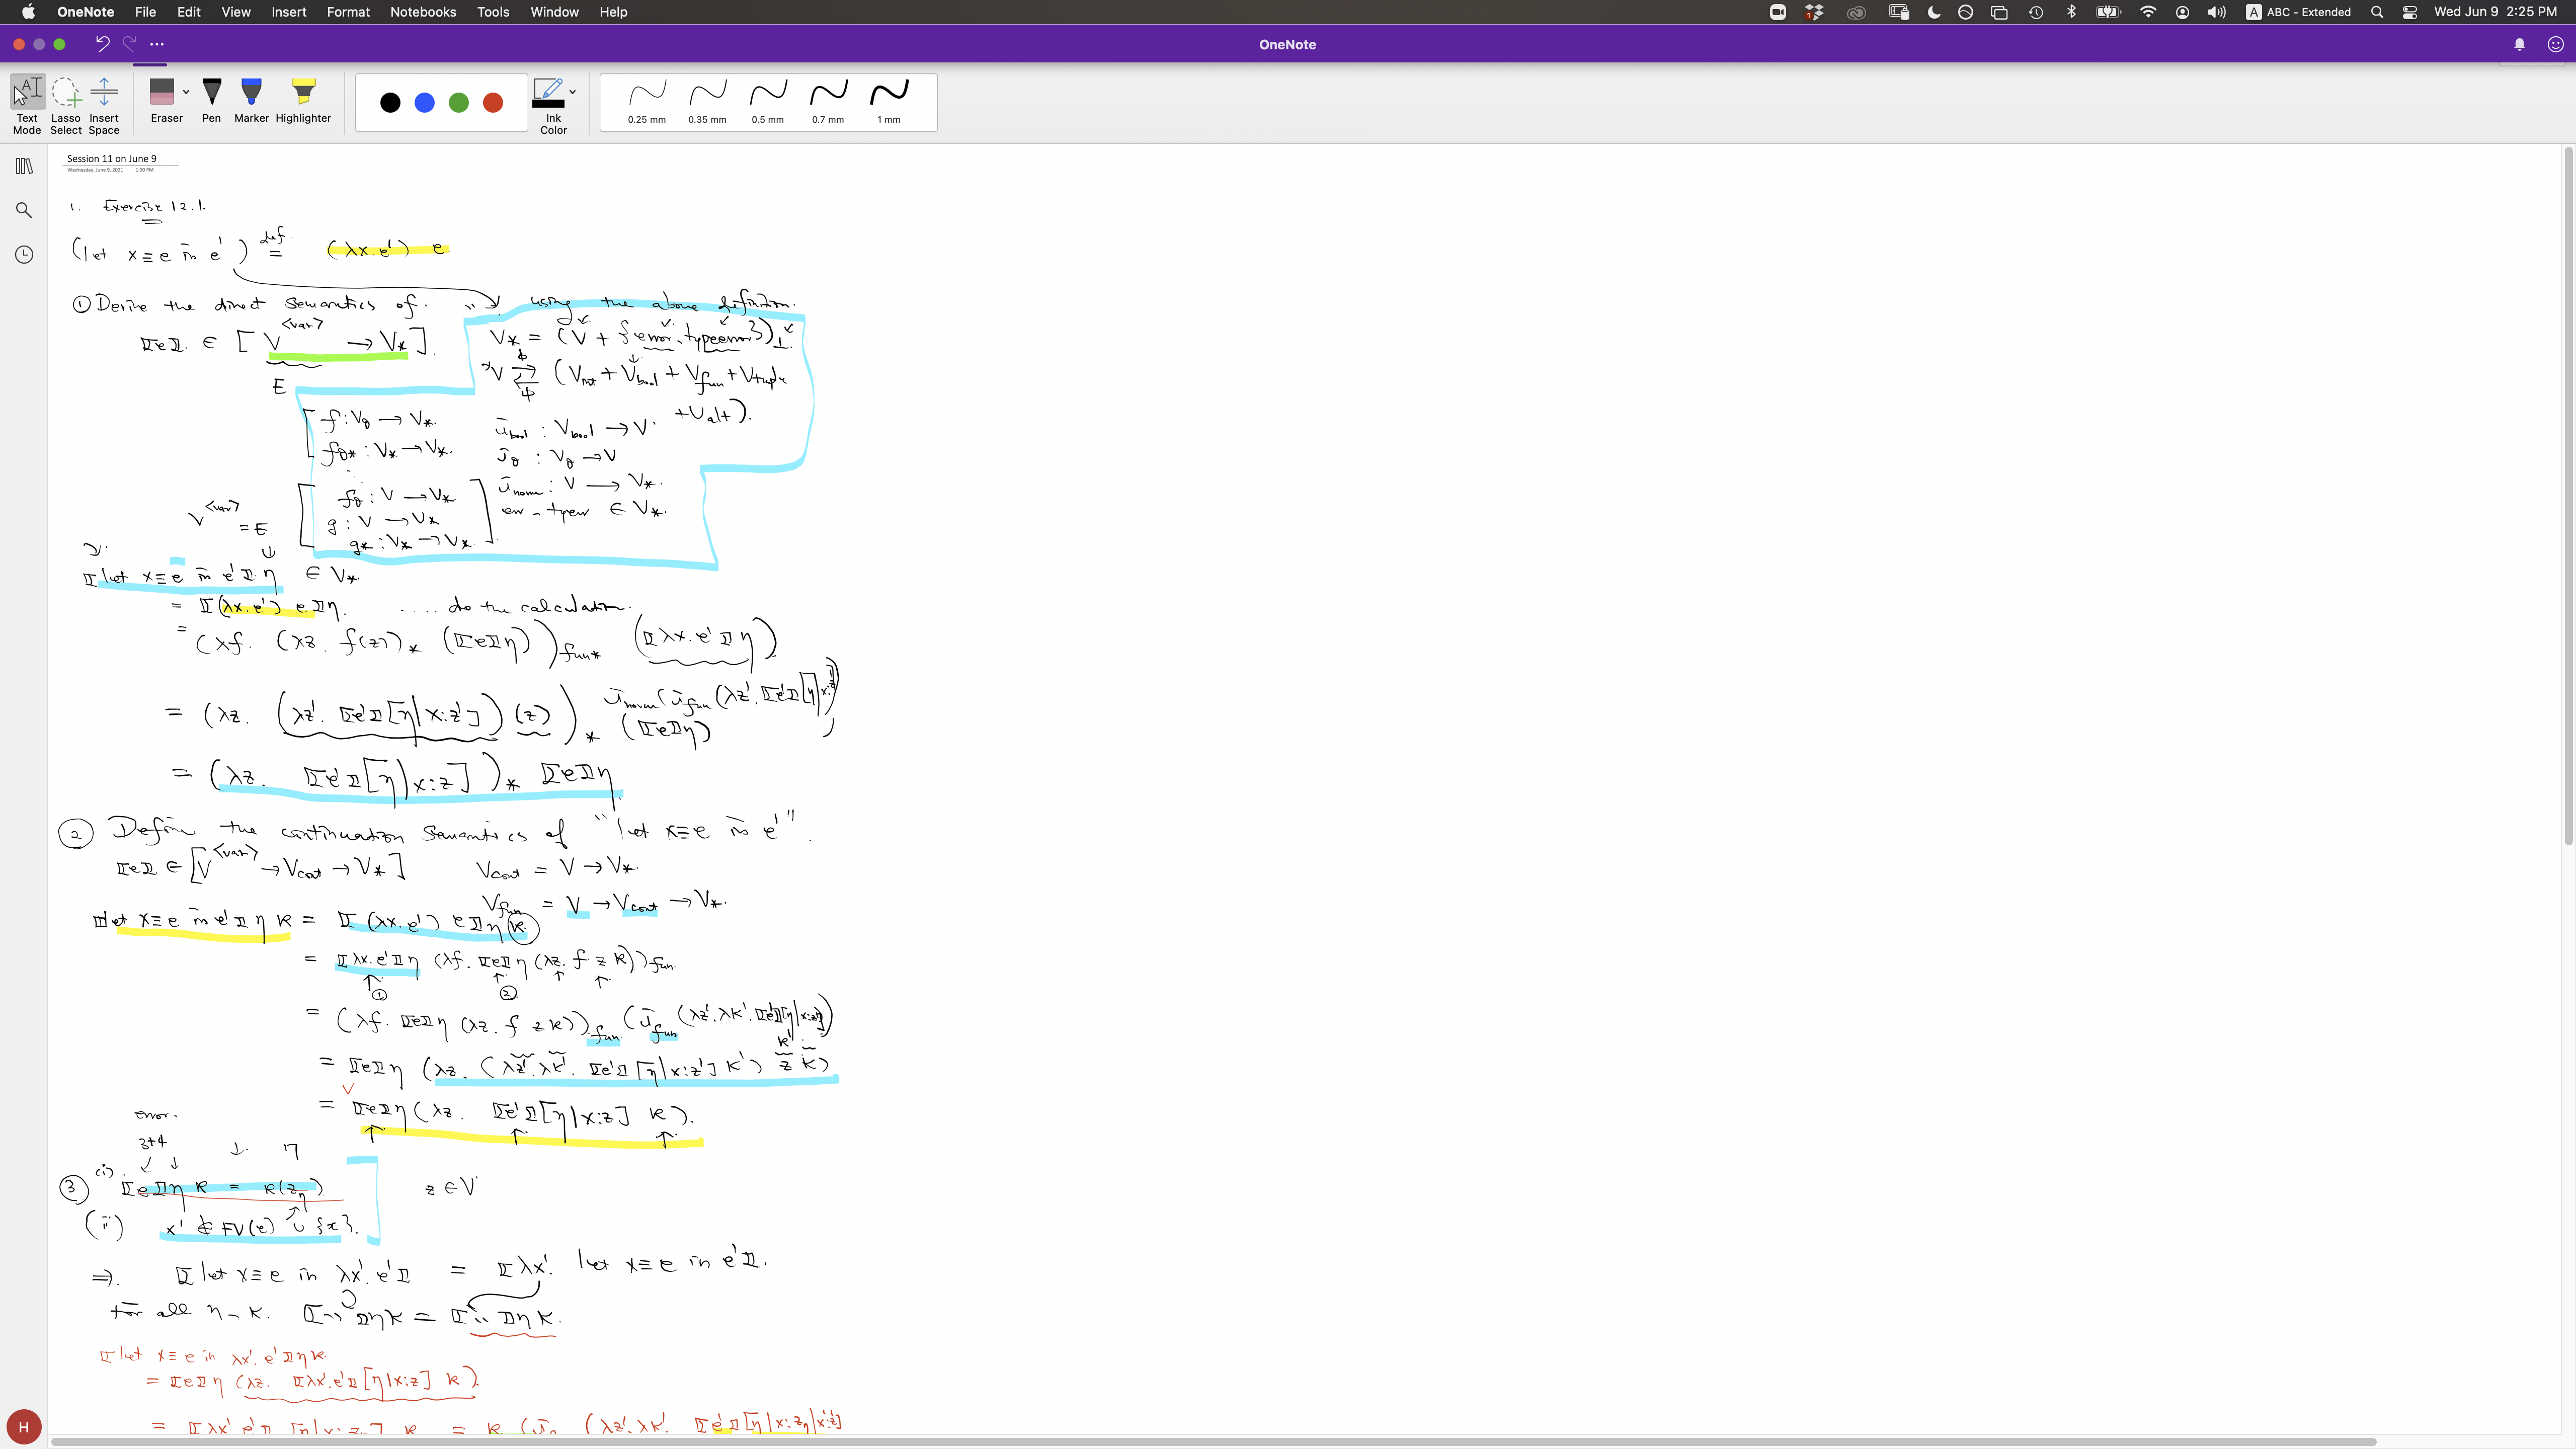 OneNote File Edit View Insert Format Notebooks Tools Window Help
1 A ABC - Extended Wed Jun 9 2:25 PM
OneNote
Text Mode
Lasso Select
Insert Space
Eraser
Pen
Marker
Highlighter
Ink Color
0.25 mm 0.35 mm 0.5 mm 0.7 mm 1 mm
Session 11 on June 9
Wednesday, June 9, 2021 1:00 PM
1. Exercise 12.1.
(let x ≡ e in e') def = (λx.e') e.
① Derive the direct semantics of " using the above definition.
⟦e⟧ ∈ [V^<var> → V*].
V* = (V + {error, typeerror})⊥.
E
V ⇄ (Vint + Vbool + Vfun + Vtuple + Valt).
ϕ ψ
f : Vθ → V*.
ībool : Vbool → V
fθ* : V* → V*.
īθ : Vθ → V
fθ : V → V*
īnorm : V → V*.
g : V → V*
err, tyerr ∈ V*.
g* : V* → V*
V^<var> = E
⟦let x ≡ e in e'⟧η ∈ V*.
= ⟦(λx.e') e⟧η. .... do the calculation.
= (λf. (λz. f(z))* (⟦e⟧η))fun* (⟦λx.e'⟧η)
īnorm(īfun(λz'.⟦e'⟧[η|x:z']))
= (λz. (λz'. ⟦e'⟧[η|x:z'])(z))* (⟦e⟧η)
= (λz. ⟦e'⟧[η|x:z])* ⟦e⟧η
② Define the continuation semantics of "let x≡e in e'".
⟦e⟧ ∈ [V^<var> → Vcont → V*] Vcont = V → V*.
Vfun = V → Vcont → V*.
⟦let x≡e in e'⟧ η κ = ⟦(λx.e') e⟧ η κ
= ⟦λx.e'⟧η (λf. ⟦e⟧η (λz. f z κ))fun.
① ②
= (λf. ⟦e⟧η (λz. f z κ))fun (īfun (λz'.λκ'.⟦e'⟧[η|x:z']
κ'
= ⟦e⟧η (λz. (λz'.λκ'. ⟦e'⟧[η|x:z'] κ') z κ)
= ⟦e⟧η(λz. ⟦e'⟧[η|x:z] κ).
error.
3+4 ↓ η
③ (i) ⟦e⟧η κ = κ(zη) z ∈ V
(ii) x' ∉ FV(e) ∪ {x}.
⇒. ⟦let x≡e in λx'.e'⟧ = ⟦λx'. let x≡e in e'⟧.
for all η, κ. ⟦..⟧ηκ = ⟦..⟧ηκ.
⟦let x≡e in λx'.e'⟧ηκ
= ⟦e⟧η (λz. ⟦λx'.e'⟧[η|x:z] κ)
= ⟦λx'.e'⟧[η|x:zη] κ = κ (λz'.λκ'. ⟦e'⟧[η|x:zη|x':z']
H